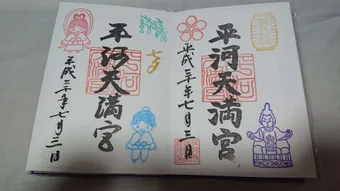 平河天満宮
平成三十年七月三日
七夕
平河天満宮
平成三十年七月三日